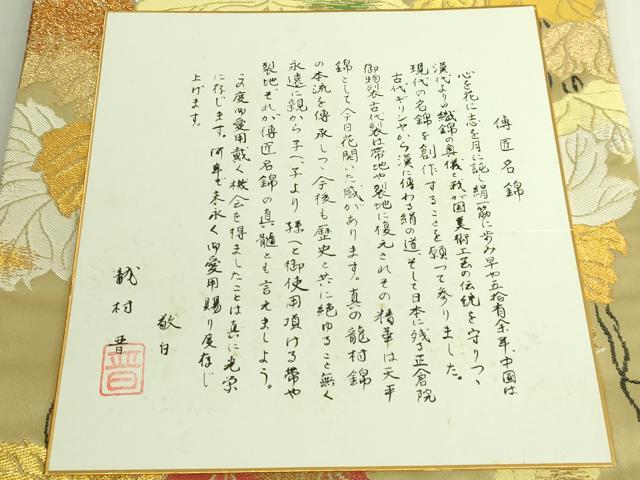 傳匠名錦
心を花に志を月に託し絹一筋に歩み早や五拾有余年、中国は
漢代よりの織錦の奥儀と我が国美術工芸の伝統を守りつゝ
現代の名錦を創作することを願って参りました。
古代ギリシヤから漢に傳わる絹の道そして日本に残る正倉院
御物裂古代裂は帯地や裂地に復元されその精華は天平
錦として今日花開いた感があります。真の龍村錦
の本流を傳承しつゝ今後も歴史と共に絶ゆること無く
永遠に親から子へ、子より孫へと御使用頂ける帯や
裂地、それが傳匠名錦の真髄とも言えましょう。
この度御愛用戴く機会を得ましたことは真に光栄
に存じます。何卒末永く御愛用賜り度存じ
上げます。
敬白
龍村晋
晋